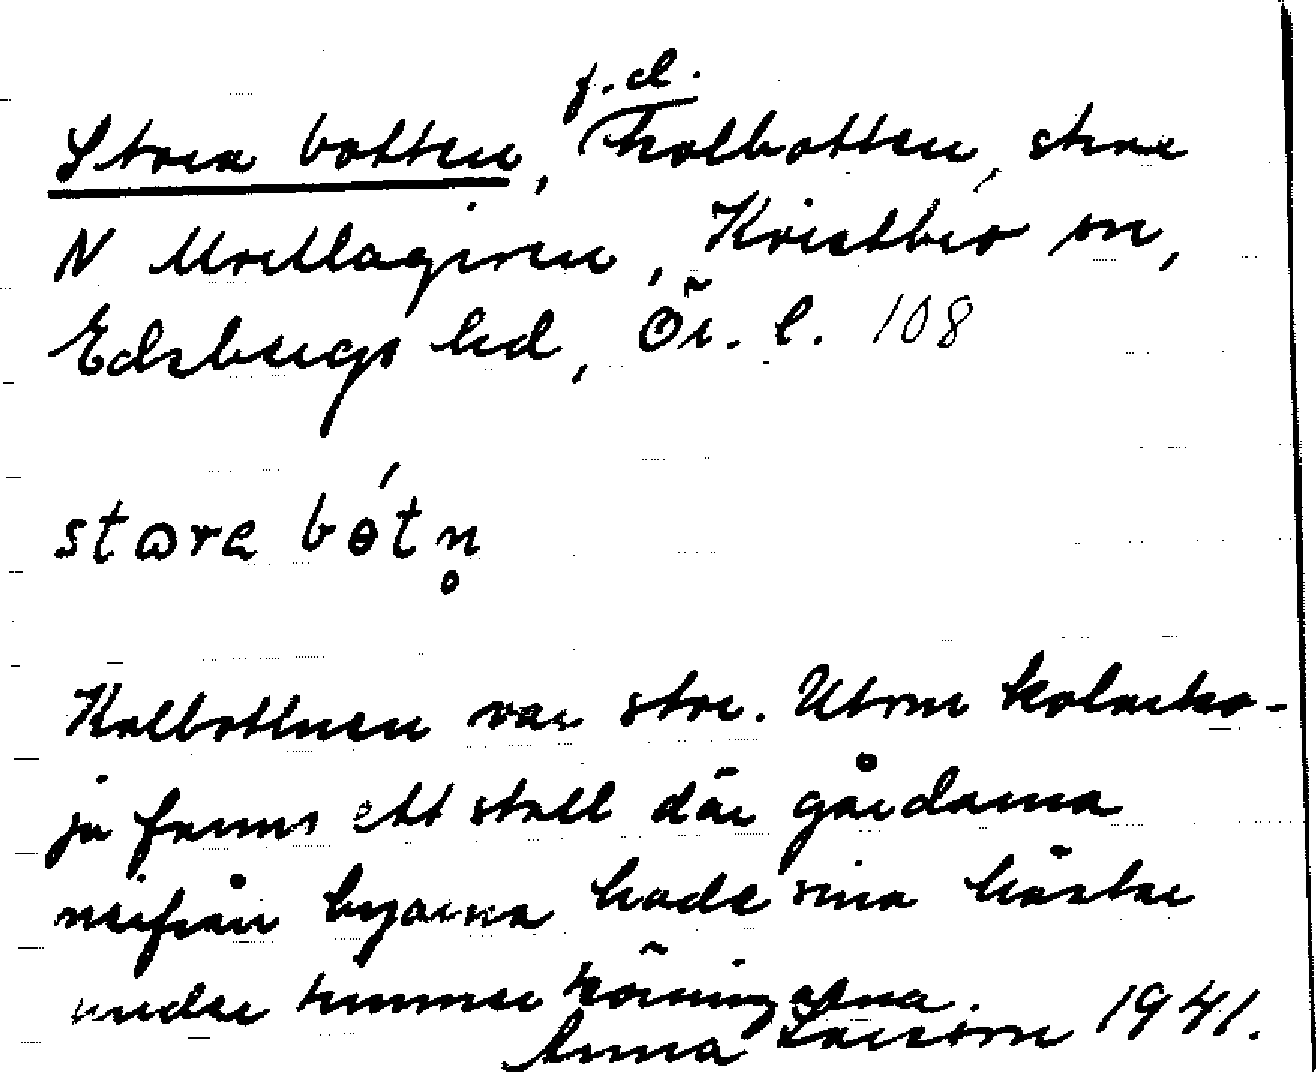 f.d.
Stora botten, kolbotten, stax
N Mullagiren, Kvistbro sn,
Edsbergs hd, Ör. l. 108
stɷra bótn̥
Kolbottnen var stor. Utom kolarko-
ja fanns ett stall där gårdarna
nerifrån byarna hade sina hästar
under timmerkörningarna.
Anna Larsson 1941.